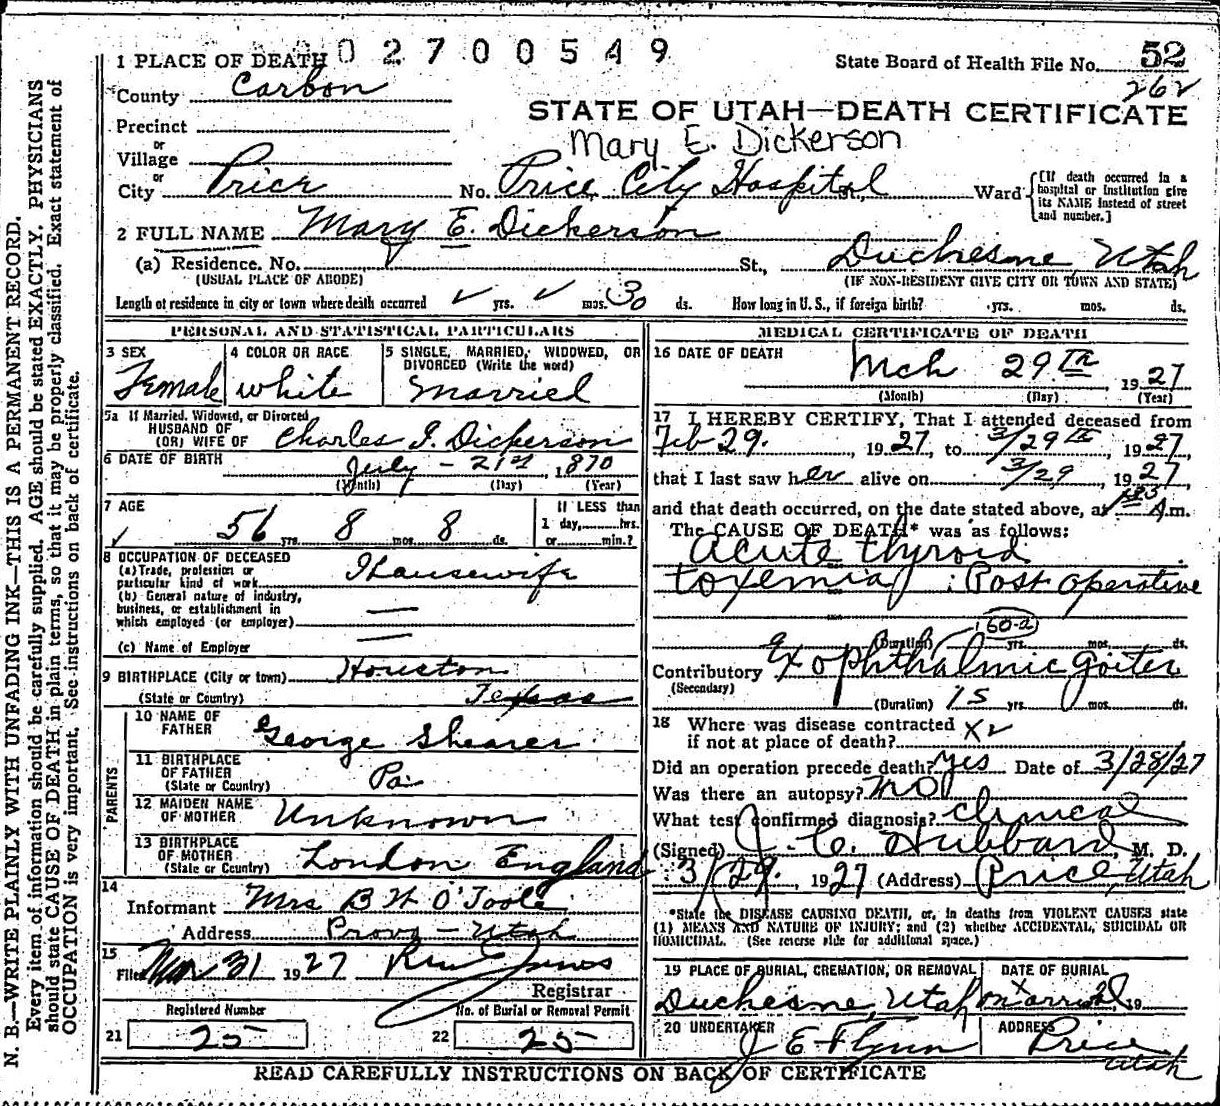 0 2 7 0 0 5 4 9
1 PLACE OF DEATH
State Board of Health File No. 52
262
County Carbon
STATE OF UTAH—DEATH CERTIFICATE
Precinct
Mary E. Dickerson
or
Village
or
City Price No. Price City Hospital St., Ward
[If death occurred in a hospital or institution give its NAME instead of street and number.]
2 FULL NAME Mary E. Dickerson
(a) Residence. No. St., Duchesne, Utah
(USUAL PLACE OF ABODE) (IF NON-RESIDENT GIVE CITY OR TOWN AND STATE)
Length of residence in city or town where death occurred ✓ yrs. ✓ mos. 30 ds. How long in U. S., if foreign birth? yrs. mos. ds.
PERSONAL AND STATISTICAL PARTICULARS
3 SEX
Female
4 COLOR OR RACE
white
5 SINGLE, MARRIED, WIDOWED, OR DIVORCED (Write the word)
Married
5a If Married, Widowed, or Divorced
HUSBAND OF
(OR) WIFE OF Charles I. Dickerson
6 DATE OF BIRTH July - 21st 1870
(Month) (Day) (Year)
7 AGE
✓ 56 yrs. 8 mos. 8 ds.
If LESS than
1 day, hrs.
or min.?
8 OCCUPATION OF DECEASED
(a) Trade, profession or
particular kind of work Housewife
(b) General nature of industry,
business, or establishment in
which employed (or employer) —
(c) Name of Employer —
9 BIRTHPLACE (City or town) Houston
(State or Country) Texas
PARENTS
10 NAME OF
FATHER George Shearer
11 BIRTHPLACE
OF FATHER
(State or Country) Pa.
12 MAIDEN NAME
OF MOTHER Unknown
13 BIRTHPLACE
OF MOTHER
(State or Country) London England
14
Informant Mrs B H O'Toole
Address Provo - Utah
15
Filed Mar 31 1927
Registrar
Registered Number
21 25
No. of Burial or Removal Permit
22 25
MEDICAL CERTIFICATE OF DEATH
16 DATE OF DEATH
Mch 29th, 1927
(Month) (Day) (Year)
17 I HEREBY CERTIFY, That I attended deceased from
Feb 29., 1927, to 3/29th, 1927,
that I last saw her alive on 3/29, 1927,
and that death occurred, on the date stated above, at A.m.
The CAUSE OF DEATH* was as follows:
Acute thyroid
toxemia : Post operative
60-a
(Duration) yrs. mos. ds.
Contributory Exophthalmic goiter
(Secondary)
(Duration) 15 yrs. mos. ds.
18 Where was disease contracted
if not at place of death?
Did an operation precede death? yes Date of 3/28/27
Was there an autopsy? no
What test confirmed diagnosis? clinical
(Signed) J. C. Hubbard, M. D.
3/29., 1927 (Address) Price, Utah
*State the DISEASE CAUSING DEATH, or, in deaths from VIOLENT CAUSES state
(1) MEANS AND NATURE OF INJURY; and (2) whether ACCIDENTAL, SUICIDAL OR
HOMICIDAL. (See reverse side for additional space.)
19 PLACE OF BURIAL, CREMATION, OR REMOVAL
Duchesne, Utah
DATE OF BURIAL
on arrival 19
20 UNDERTAKER
J E Flynn
ADDRESS
Price
Utah
READ CAREFULLY INSTRUCTIONS ON BACK OF CERTIFICATE
N. B.—WRITE PLAINLY WITH UNFADING INK—THIS IS A PERMANENT RECORD.
Every item of information should be carefully supplied. AGE should be stated EXACTLY. PHYSICIANS
should state CAUSE OF DEATH in plain terms, so that it may be properly classified. Exact statement of
OCCUPATION is very important. See instructions on back of certificate.